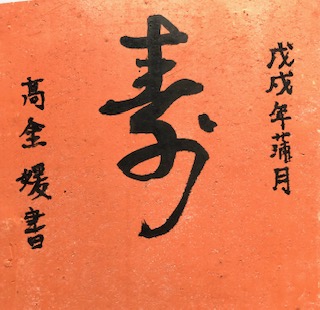 戊戌年蒲月
寿
高金媛書